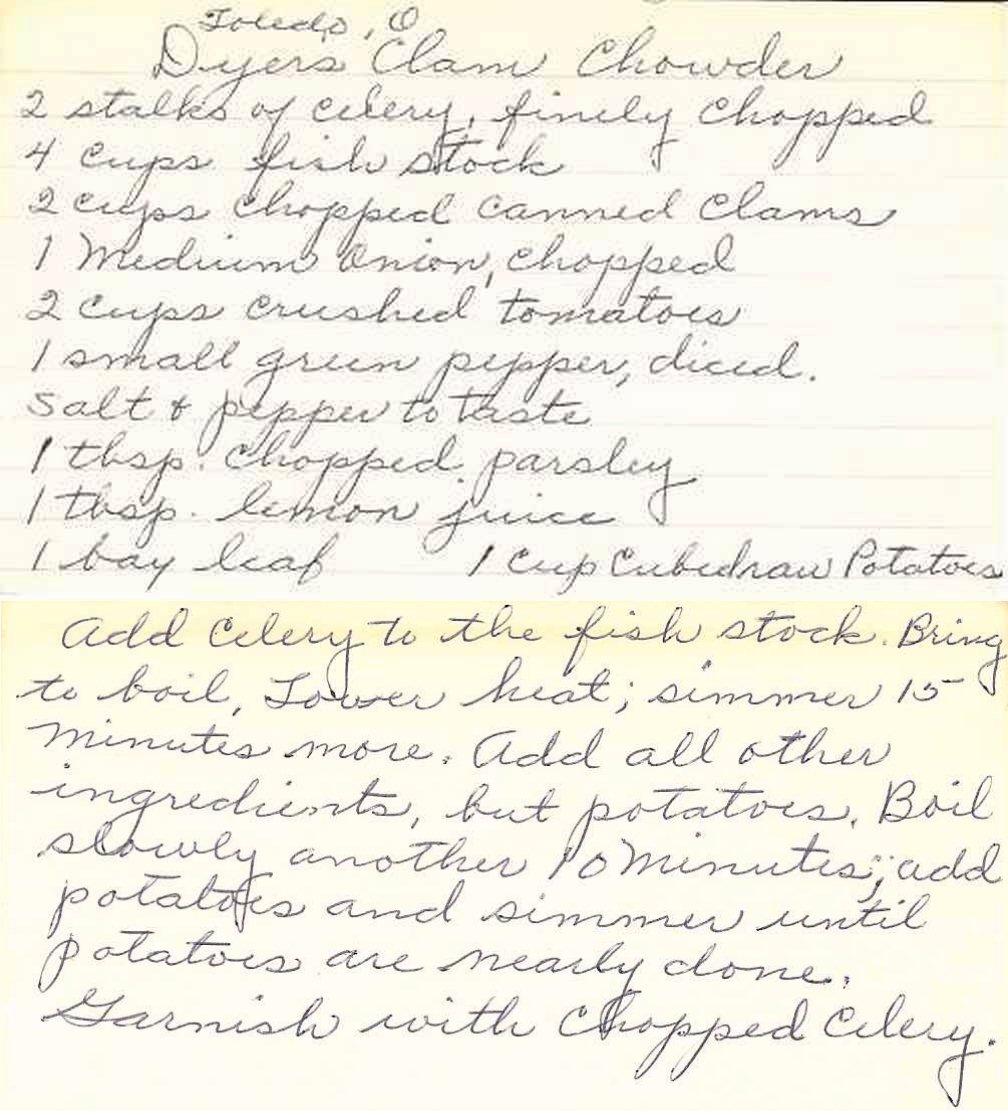 Toledo, O
Dyers Clam Chowder
2 stalks of celery, finely chopped
4 cups fish stock
2 cups chopped canned clams
1 Medium onion, chopped
2 cups crushed tomatoes
1 small green pepper, diced.
salt & pepper to taste
1 tbsp. chopped parsley
1 tbsp. lemon juice
1 bay leaf 1 cup cubed raw Potatoes
Add celery to the fish stock. Bring
to boil, Lower heat; simmer 15
minutes more. Add all other
ingredients, but potatoes. Boil
slowly another 10 minutes; add
potatoes and simmer until
potatoes are nearly done.
Garnish with chopped celery.